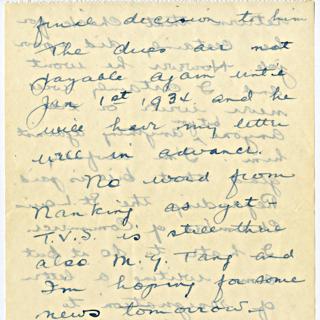 final decision to him
The dues are not
payable again until
Jan 1st 1934 and he
will have my letter
well in advance.
No word from
Nanking as yet -
T.V.S. is still there
also M. Y. Tang and
I'm hoping for some
news tomorrow.